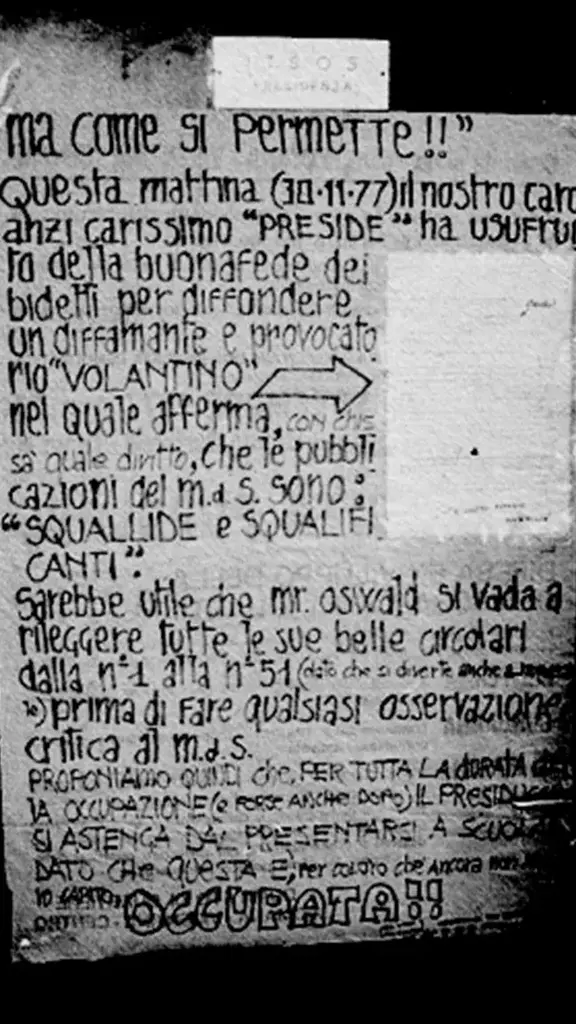 ITSOS
PRESIDENZA
ma come si permette!!”
Questa mattina (30·11·77) il nostro caro
anzi carissimo “PRESIDE” ha usufrui
to della buonafede dei
bidelli per diffondere
un diffamante e provocato
rio “VOLANTINO”
nel quale afferma, con chis
sà quale diritto, che le pubbli
cazioni del m.d.s. sono:
“SQUALLIDE e SQUALIFI
CANTI”.
sarebbe utile che mr. oswald si vada a
rileggere tutte le sue belle circolari
dalla n°1 alla n°51 (dato che si diverte anche a
) prima di fare qualsiasi osservazione
critica al m.d.s.
PROPONIAMO QUINDI che, PER TUTTA LA DURATA
LA OCCUPAZIONE (e forse anche dopo) IL PRESIDE
SI ASTENGA DAL PRESENTARSI A SCUOLA
DATO CHE QUESTA E', per coloro che ancora non
lo capito,
OCCUPATA!!